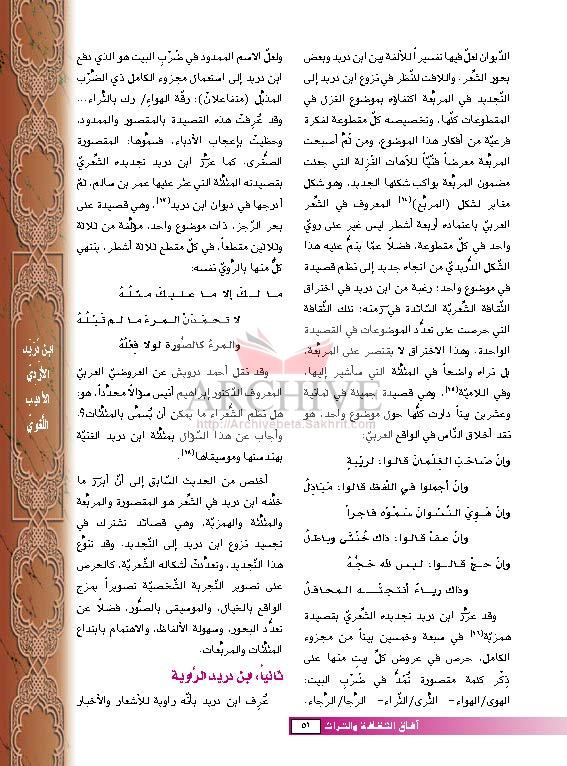 الدّيوان لعلّ فيها تفسيراً للألفة بين ابن دريد وبعض
بحور الشّعر. واللافت للنّظر في نزوع ابن دريد إلى
التّجديد في المربّعة اكتفاؤه بموضوع الغزل في
المقطوعات كلّها، وتخصيصه كلّ مقطوعة لفكرة
فرعيّة من أفكار هذا الموضوع. ومن ثَمّ أصبحت
المربّعة معرضاً فنّيّاً للآهات الغَزِلة التي جعلت
مضمون المربّعة يواكب شكلها الجديد، وهو شكل
مغاير لشكل (المربّع) المعروف في الشّعر
العربيّ باعتماده أربعة أشطر ليس غير على رويّ
واحد في كلّ مقطوعة. فضلاً عمّا ينمّ عليه هذا
الشّكل الدّريديّ من اتجاه جديد إلى نظم قصيدة
في موضوع واحد؛ رغبة من ابن دريد في اختراق
الثّقافة الشّعريّة السّائدة في زمنه؛ تلك الثّقافة
التي حرصت على تعدُّد الموضوعات في القصيدة
الواحدة. وهذا الاختراق لا يقتصر على المربّعة،
بل تراه واضحاً في المثلّثة التي سأشير إليها،
وفي اللاميّة، وهي قصيدة جميلة في ثمانية
وعشرين بيتاً دارت كلّها حول موضوع واحد، هو
نقد أخلاق النّاس في الواقع العربيّ:
وإنْ صاحَبَ الغلمانَ قالوا: لريبةٍ
وإنْ أجملوا في اللّفظ قالوا: مَبَاذِلُ
وإنْ هَوِيَ النّسوانَ سَمَّوْهُ فاجراً
وإنْ عفّ قالوا: ذاك خُنْثَى وباطلُ
وإنْ حجّ قالوا: ليس لله حجُّهُ
وذاك رياءٌ أنتجتْه المحافلُ
وقد عزّز ابن دريد تجديده الشّعريّ بقصيدة
همزيّة في سبعة وخمسين بيتاً من مجزوء
الكامل، حرص في عروض كلّ بيتٍ منها على
ذِكْر كلمة مقصورة تُمَدُّ في ضَرْب البيت:
الهوى/الهواء- الثّرى/الثّراء- الرّجا/الرّجاء.
ولعلّ الاسم الممدود في ضَرْب البيت هو الذي دفع
ابن دريد إلى استعمال مجزوء الكامل ذي الضّرْب
المذيّل (متفاعلانْ): رقّة الهواءِ/ رك بالثّراء...
وقد عُرِفتْ هذه القصيدة بالمقصور والممدود،
وحظيتْ بإعجاب الأدباء، فسمَّوها: المقصورة
الصّغرى. كما عزّز ابن دريد تجديده الشّعريّ
بقصيدته المثلّثة التي عثر عليها عمر بن سالم، ثمّ
أدرجها في ديوان ابن دريد، وهي قصيدة على
بحر الرّجز، ذات موضوع واحد، مؤلّفة من ثلاثة
وثلاثين مقطعاً، في كلّ مقطع ثلاثة أشطر، ينتهي
كلٌّ منها بالرّويّ نفسه:
ما لكَ إلا ما عليكَ مثلُهُ
لا تَحمَدَنَّ المرءَ ما لم تَبْلُهُ
والمرءُ كالصّورة لولا فِعْلُهُ
وقد نقل أحمد درويش عن العروضيّ العربيّ
المعروف الدّكتور إبراهيم أنيس سؤالاً محدّداً، هو:
هل نظم الشّعراء ما يمكن أن يُسمَّى بالمثلّثات؟.
وأجاب عن هذا السّؤال بمثلّثة ابن دريد الغنيّة
بهندستها وموسيقاها.
أخلص من الحديث السّابق إلى أنّ أبرز ما
خلّفه ابن دريد في الشّعر هو المقصورة والمربّعة
والمثلّثة والهمزيّة، وهي قصائد تشترك في
تجسيد نزوع ابن دريد إلى التّجديد. وقد تنوّع
هذا التّجديد، وتعدّدتْ أشكاله الشّعريّة، كالحرص
على تصوير التّجربة الشّخصيّة تصويراً يمزج
الواقع بالخيال، والموسيقى بالصّور، فضلاً عن
تعدّد البحور، وسهولة الألفاظ، والاهتمام بابتداع
المثلّثات والمربّعات.
ثانياً، ابن دريد الرّاوية
عُرِف ابن دريد بأنّه راوية للأشعار والأخبار
ابن دُرَيْد
الأزديّ
الأديب
اللّغويّ
ARCHIVE
http://Archivebeta.Sakhrit.com
آفاق الثقافة والتراث ٥١